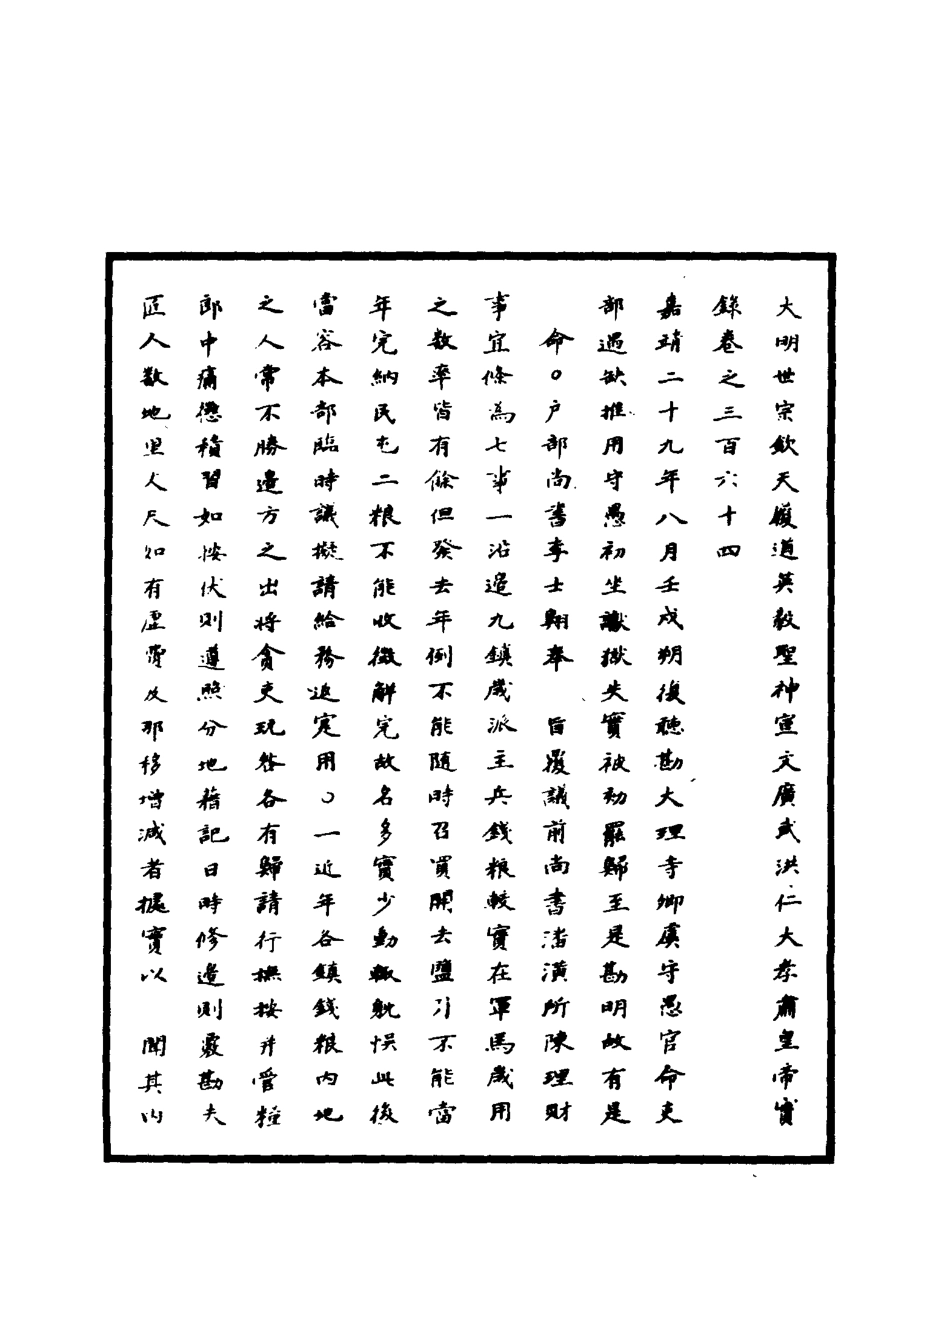 大明世宗欽天履道英毅聖神宣文廣武洪仁大孝肅皇帝實
錄卷之三百六十四
嘉靖二十九年八月壬戌朔復聽勘大理寺卿虞守愚官命吏
部遇缺推用守愚初坐讞獄失實被劾罷歸至是勘明故有是
命○戶部尚書李士翱奉 旨覆議前尚書潘潢所陳理財
事宜條為七事一沿邊九鎮歲派主兵錢粮較實在軍馬歲用
之數率皆有餘但發去年例不能隨時召買開去鹽引不能當
年完納民屯二粮不能收徵解完故名多實少動輒躭悞此後
當咨本部臨時議擬請給務追寔用○一近年各鎮錢粮內地
之人常不勝邊方之出將貪吏玩咎各有歸請行撫按并管糧
郎中痛懲積習如按伏則遵照分地藉記日時修邊則覈勘夫
匠人數地里丈尺如有虛費及那移增減者據實以 聞其內